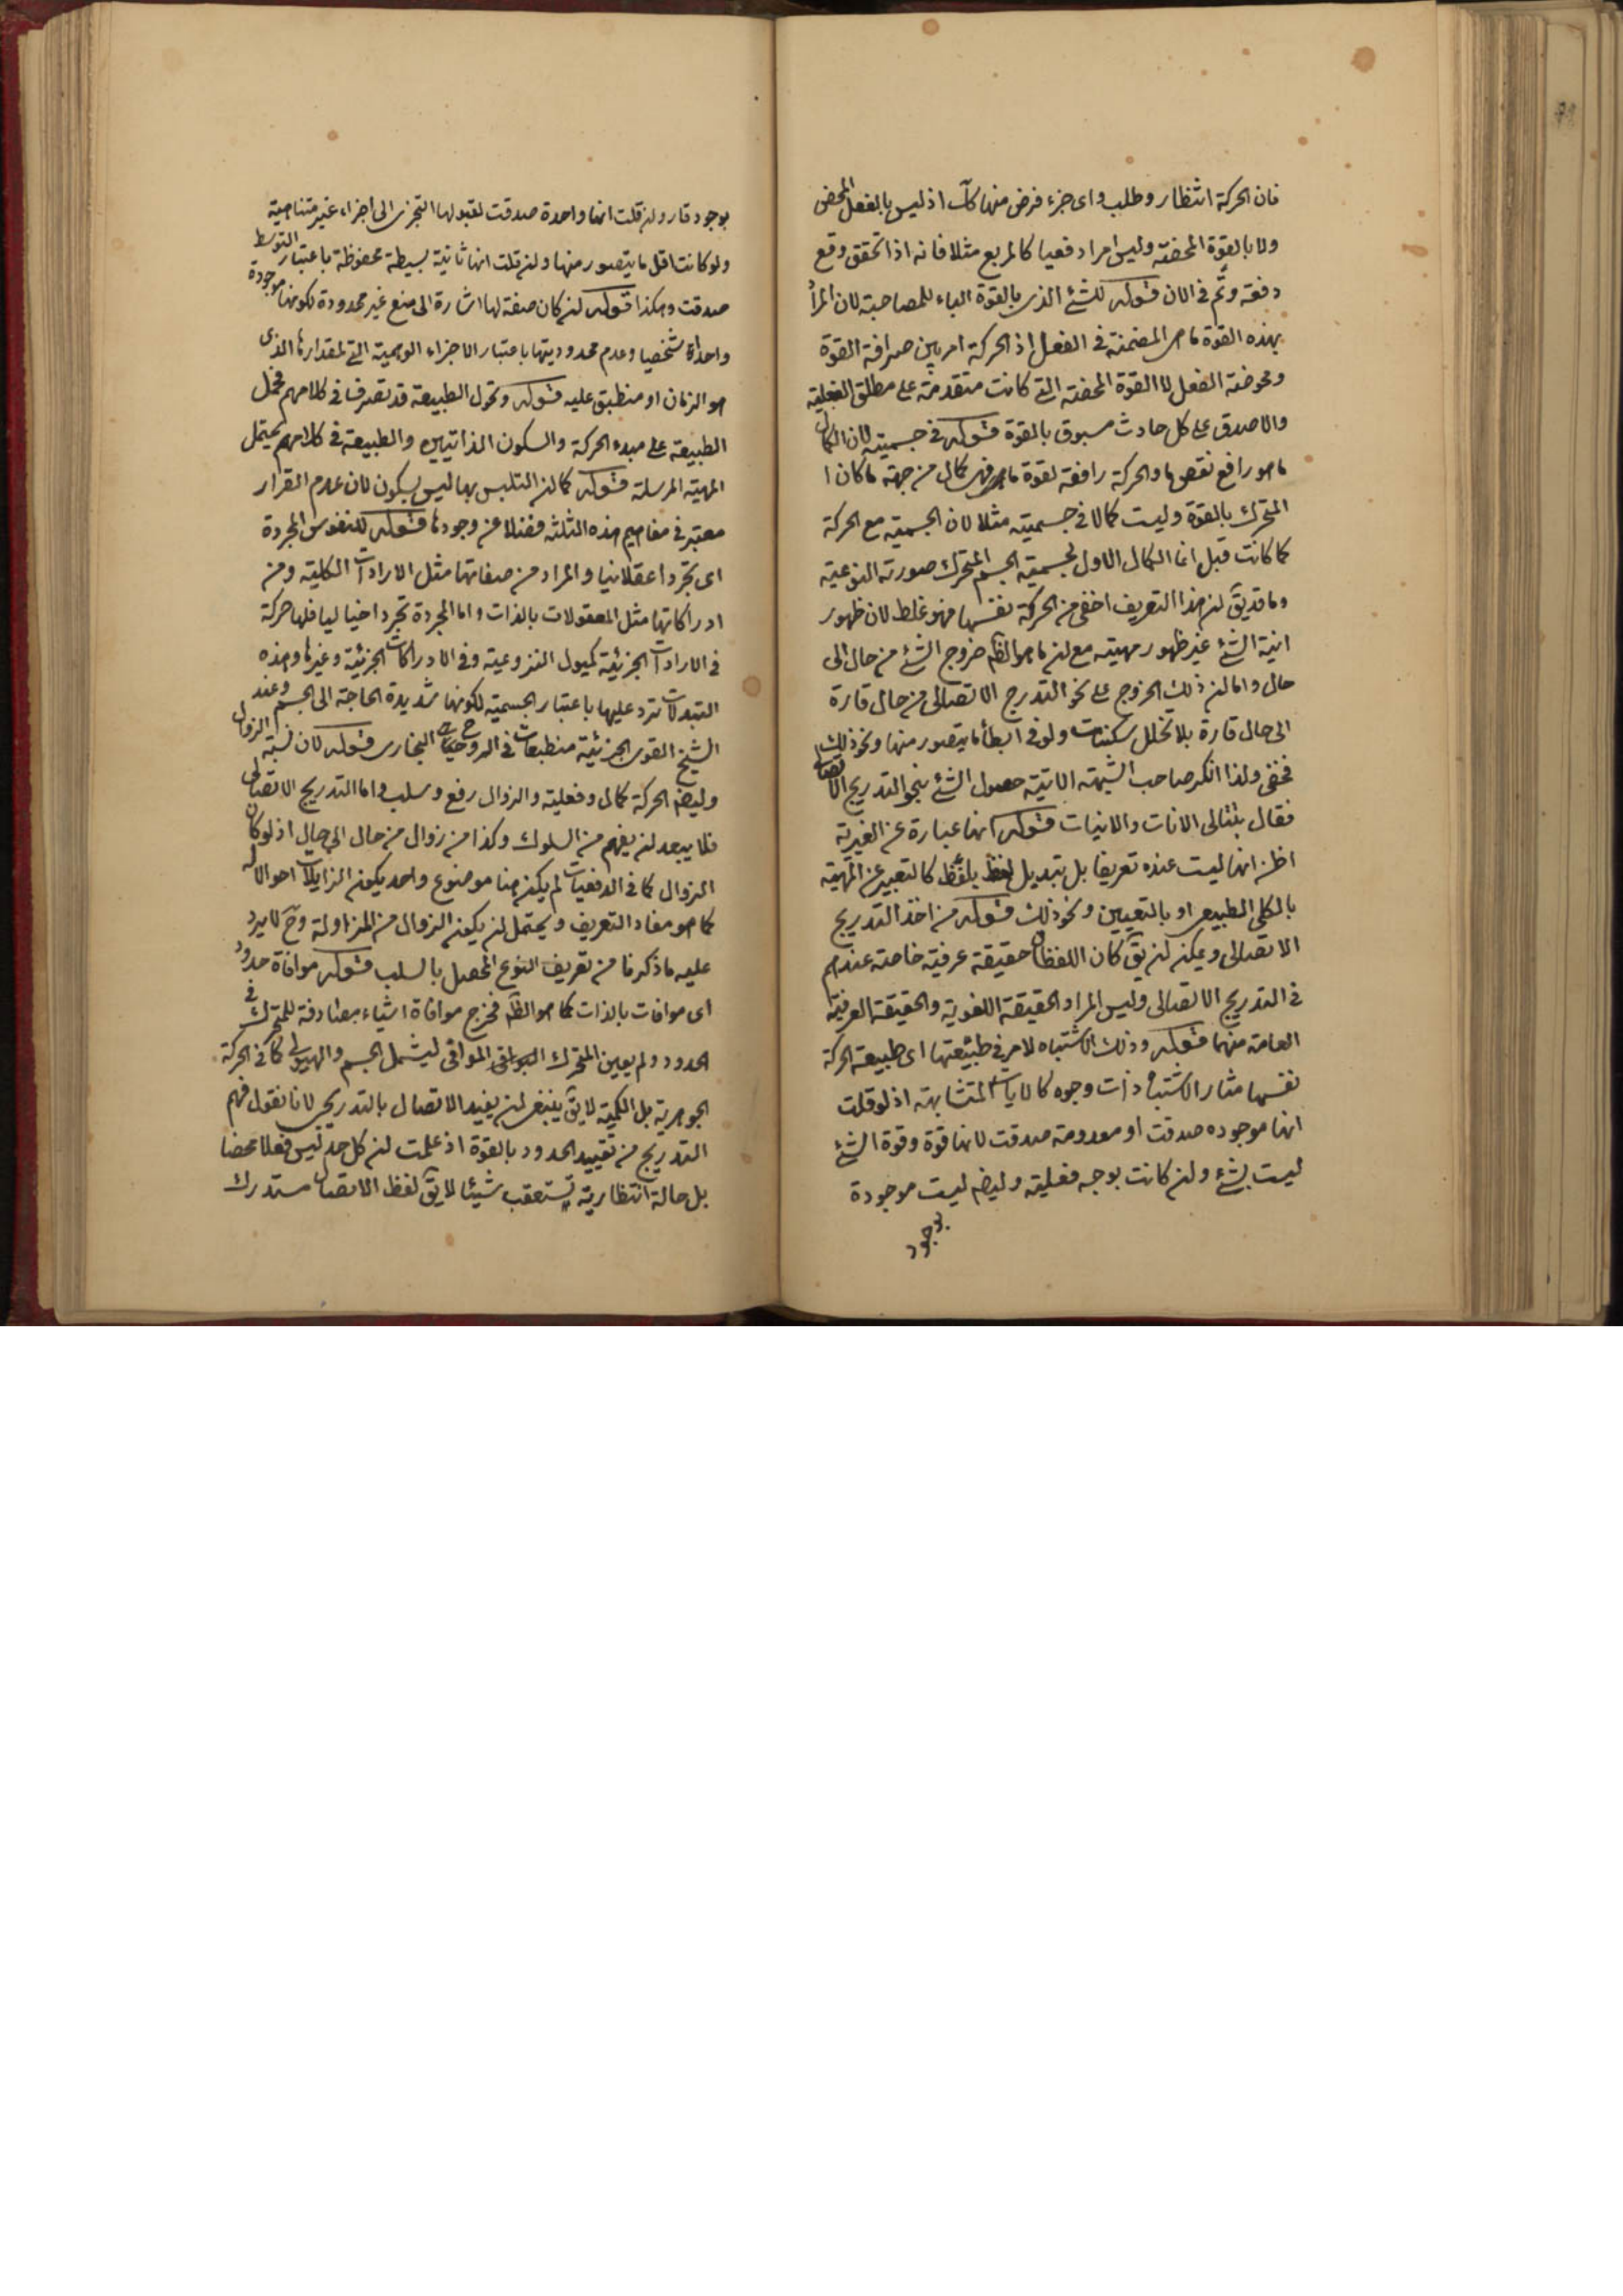 فان الحركة انتظار وطلب واى جزء فرض منها كك اذ ليس بالفعل المحض
ولا بالقوة المحضة وليس امرا دفعيا كالمربع مثلا فانه اذا تحقق وقع
دفعة وتم فى الان قوله للشئ الذى بالقوة الباء للمصاحبة لان المراد
بهذه القوة ما هى المضمنة فى الفعل اذ الحركة امر بين صرافة القوة
ومحوضة الفعل لا القوة المحضة التى كانت متقدمة على مطلق الفعلية
والا صدق على كل حادث مسبوق بالقوة قوله فى جسميته لان الكمال
ما هو رافع نقص ما والحركة رافعة لقوة ما فهى كمال من جهة ما كان ا
المتحرك بالقوة وليست كمالا فى جسميته مثلا لان الجسمية مع الحركة
كما كانت قبل انما الكمال الاول لجسمية الجسم المتحرك صورته النوعية
وما قد يق لن هذا التعريف اخفى من الحركة نفسها فهو غلط لان ظهور
انية الشئ غير ظهور مهيته مع لن ما هو الظ خروج الشئ من حال الى
حال واما لن ذلك الخروج على نحو التدرج الاتصالى من حال قارة
الى حال قارة بلا تخلل سكنات ولو فى ابطأ ما يتصور منها ونحو ذلك
فخفى ولذا انكر صاحب الشبهة الاتية حصول الشئ بنحو التدريج الاتصالى
فقال بتتالى الانات والانيات قوله انها عبارة عن الغيرية
اظن انها ليست عنده تعريفا بل تبديل لفظ بلفظ كالتعبير عن المهية
بالكلى الطبيعى او بالتعيين ونحو ذلك قوله من اخذ التدريج
الاتصالى ويمكن لن يق كان اللفظان حقيقة عرفية خاصة عندهم
فى التدريج الاتصالى وليس المراد الحقيقة اللغوية والحقيقة العرفية
العامة منهما قوله وذلك الاشتباه لامر فى طبيعتها اى طبيعة الحركة
نفسها مثار الاشتباه ذات وجوه كالايات المتشابهة اذ لو قلت
انها موجوده صدقت او معدومة صدقت لانها قوة وقوة الشئ
ليست بشئ ولن كانت بوجه فعلية وليضه ليست موجودة
بوجود
بوجود قار ولن قلت انها واحدة صدقت لقبولها التجزى الى اجزاء غير متناهية
ولو كانت اقل ما يتصور منها ولن قلت انها ثابتة بسيطة محفوظة باعتبار التوسط
صدقت وهكذا قوله لن كان صفة لها اشارة الى منع غير محدودة لكونها موجودة
واحدة شخصيا وعدم محدوديتها باعتبار الاجزاء الوهمية التى لمقدارها الذى
هو الزمان او منطبق عليه قوله وتحول الطبيعة قد تصرفنا فى كلامهم فحمل
الطبيعة على مبدء الحركة والسكون الذاتيين والطبيعة فى كلامهم يحتمل
المهية المرسلة قوله كما لن التلبس بها ليس بسكون لان عدم القرار
معتبر فى مفاهيم هذه الثلثة فضلا عن وجودها قوله للنفوس المجردة
اى تجردا عقلانيا والمراد من صفاتها مثل الارادات الكلية ومن
ادراكاتها مثل المعقولات بالذات واما المجردة تجردا خياليا فلها حركة
فى الارادات الجزئية كميول النزوعية وفى الادراكات الجزئية وغيرها وهذه
التبدلات ترد عليها باعتبار الجسمية لكونها شديدة الحاجة الى الجسم وعند
الشيخ القوى الجزئية منطبعات فى الروح البخارى قوله لان نسبة الزوال
وليضه الحركة كمال وفعلية والزوال رفع وسلب واما التدريج الاتصالى
فلا يبعد لن يفهم من السلوك وكذا من زوال من حال الى حال اذ لو كان
الزوال كما فى الدفعيات لم يكن هنا موضوع واحد يكون الزايلات احوالا له
كما هو مفاد التعريف ويحتمل لن يكون الزوال من المزاولة وح لا يرد
عليه ما ذكرنا من تعريف النوع المحصل بالسلب قوله موافاة حدود
اى موافات بالذات كما هو الظ فخرج موافاة اشياء مصادفة للمتحرك فى
الحدود ولم يعين المتحرك الموافى ليشمل الجسم والهيولى كما فى الحركة
الجوهرية بل الكمية لا يق ينبغى لن يفيد الاتصال بالتدريج لانا نقول فهم
التدريج من تقييد الحدود بالقوة اذ علمت لن كل حد ليس فعلا محضا
بل حالة انتظارية تستعقب شيئا لا يق لفظ الاتصال مستدرك